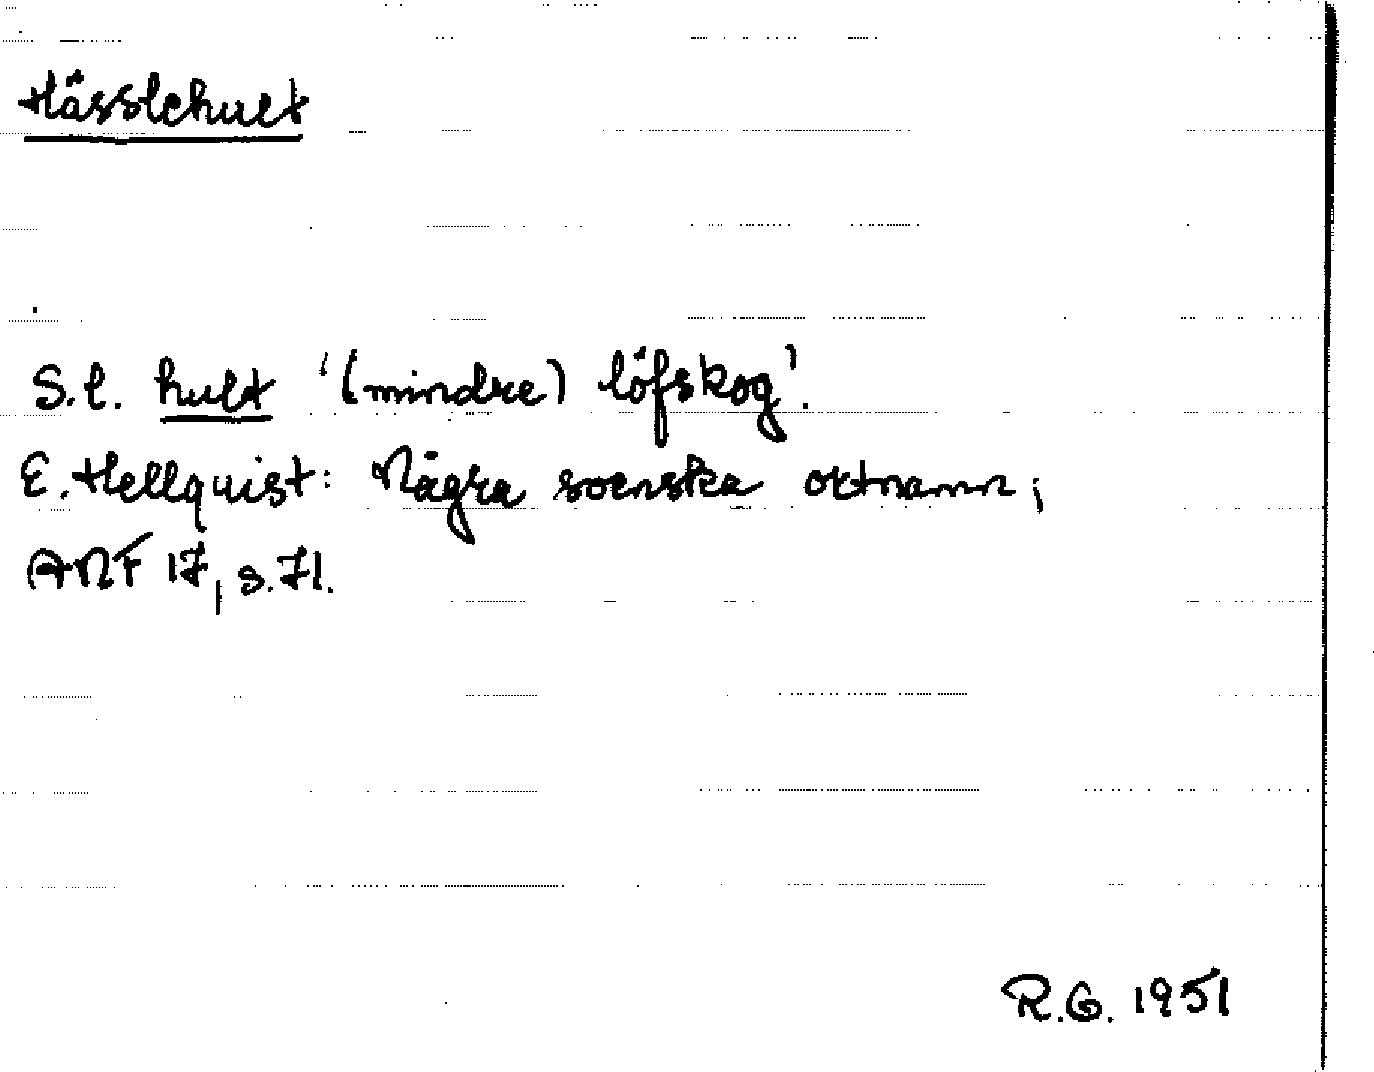 Hässlehult
S.l. hult '(mindre) löfskog'.
E. Hellquist: Några svenska ortnamn;
ANF 17, s. 71.
R.G. 1951